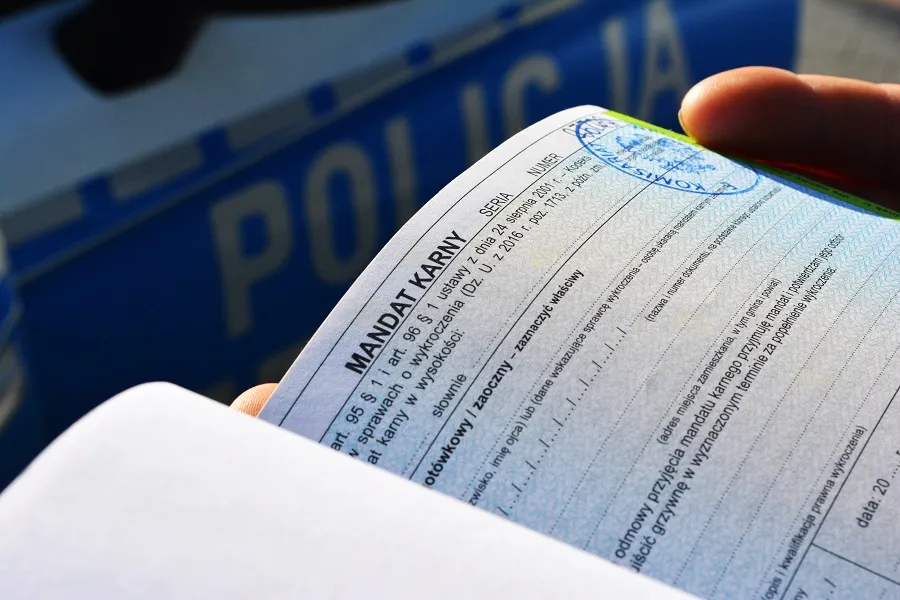 POLICJA
MANDAT KARNY SERIA NUMER
art. 95 § 1 i art. 96 § 1 ustawy z dnia 24 sierpnia 2001 r. – Kodeks
w sprawach o wykroczenia (Dz. U. z 2016 r. poz. 1713, z późn. zm
at karny w wysokości:
słownie
otówkowy / zaoczny – zaznaczyć właściwy
zwisko, imię ojca) lub (dane wskazujące sprawcę wykroczenia – osobę ukaraną mandatem
(nazwa i numer dokumentu, na podstawie którego ustalono
(adres miejsca zamieszkania, w tym gmina i powiat)
odmowy przyjęcia mandatu karnego przyjmuję mandat i potwierdzam jego odbiór
uiścić grzywnę w wyznaczonym terminie za popełnienie wykroczenia:
(opis i kwalifikacja prawna wykroczenia)
data: 20